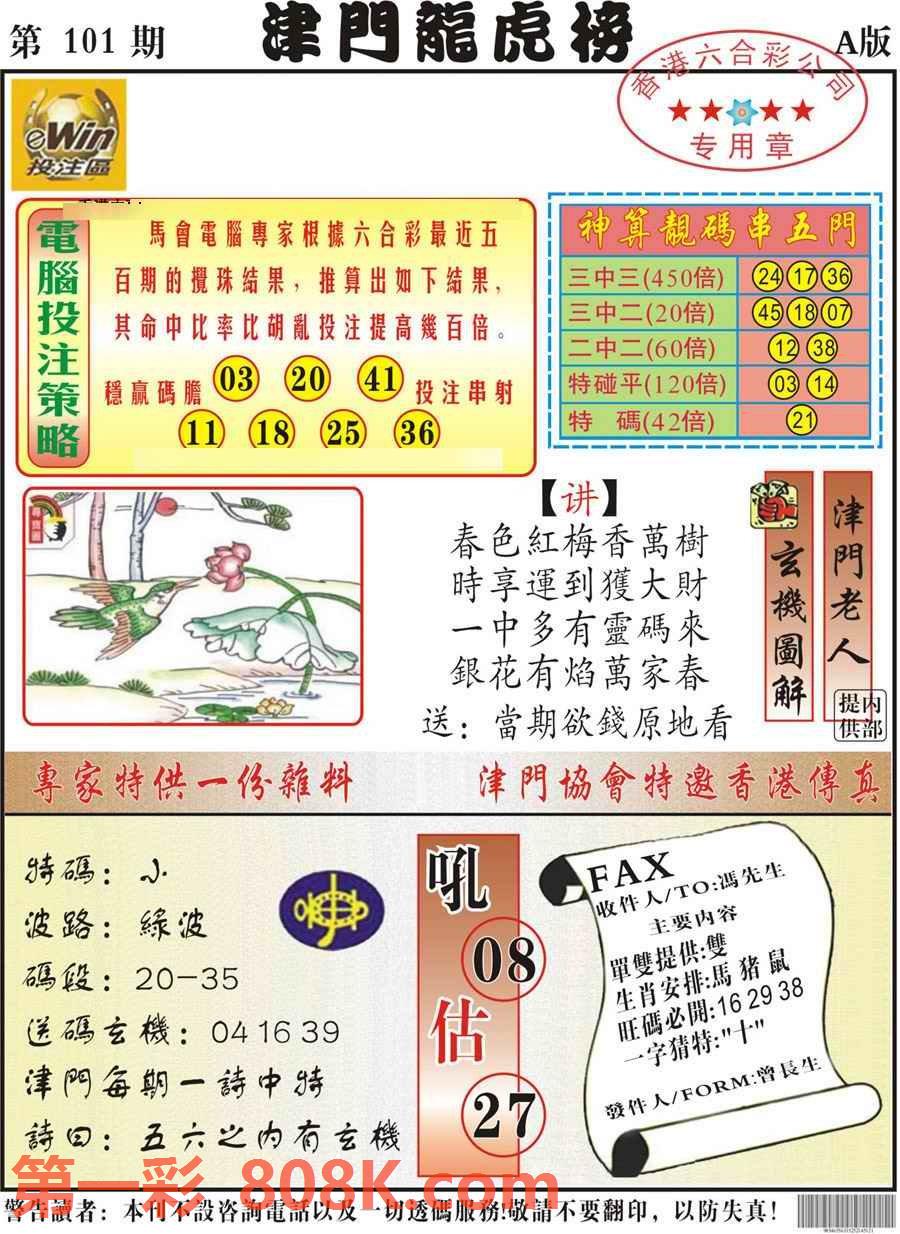 第 101 期
津門龍虎榜
A版
香港六合彩公司
★★★★
专用章
eWin
投注區
電腦投注策略
馬會電腦專家根據六合彩最近五
百期的攪珠結果，推算出如下結果，
其命中比率比胡亂投注提高幾百倍。
穩贏碼膽 03 20 41 投注串射
11 18 25 36
神算靚碼串五門
三中三(450倍) 24 17 36
三中二(20倍) 45 18 07
二中二(60倍) 12 38
特碰平(120倍) 03 14
特 碼(42倍) 21
尋寶圖
【讲】
春色紅梅香萬樹
時享運到獲大財
一中多有靈碼來
銀花有焰萬家春
送：當期欲錢原地看
玄機圖解
津門老人
内部提供
專家特供一份雜料
津門協會特邀香港傳真
特碼：小
波路：綠波
碼段：20-35
送碼玄機：04 16 39
津門每期一詩中特
詩曰：五六之内有玄機
吼
08
估
27
FAX
收件人/TO:馮先生
主要内容
單雙提供:雙
生肖安排:馬 猪 鼠
旺碼必開:16 29 38
一字猜特:"十"
發件人/FORM:曾長生
第一彩 808K.com
警告讀者：本刊不設咨詢電話以及一切透碼服務!敬請不要翻印，以防失真!